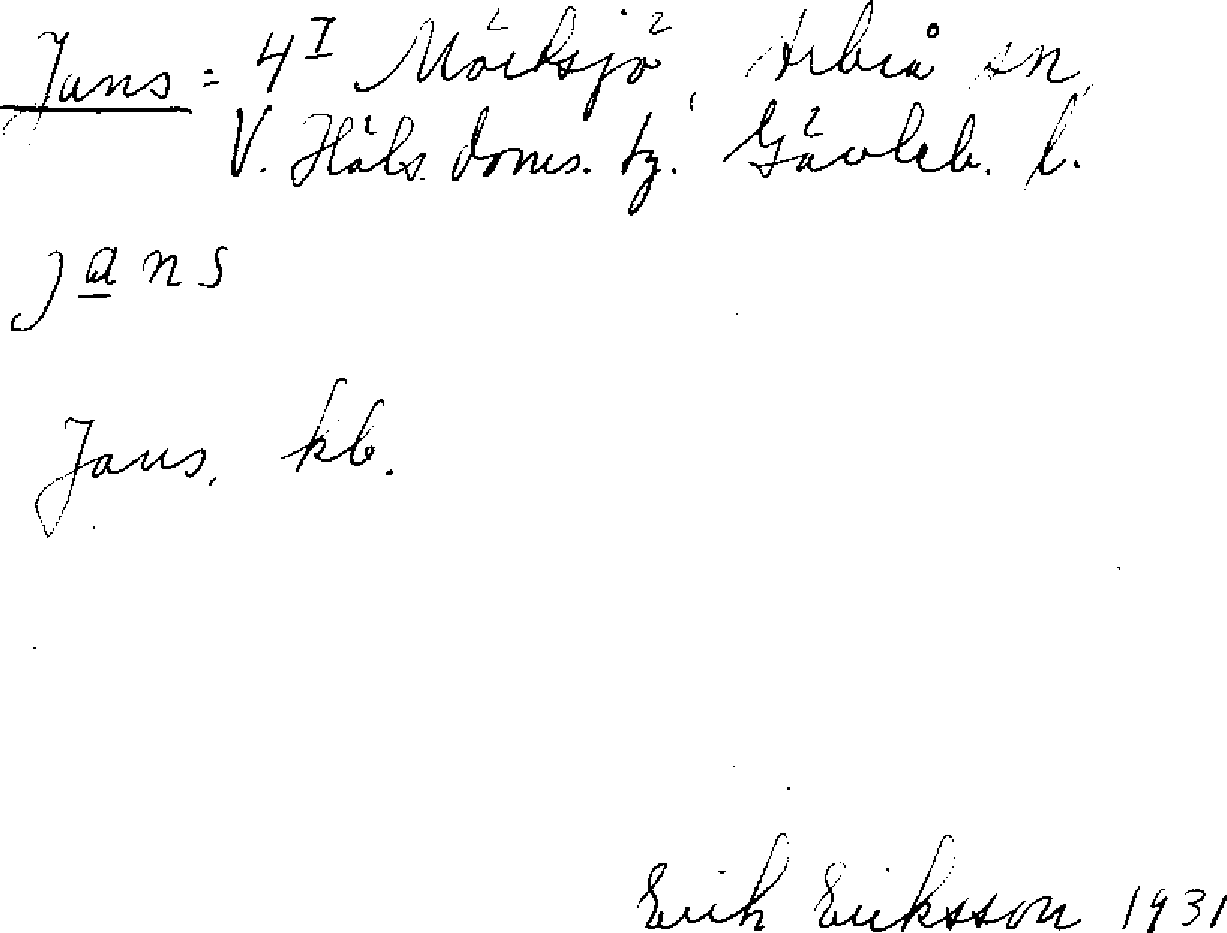 Jans = 4I Mörksjö, Arbrå sn,
V. Häls. doms. tg. Gävleb. l.
jans
Jans, kb.
Erik Eriksson 1931